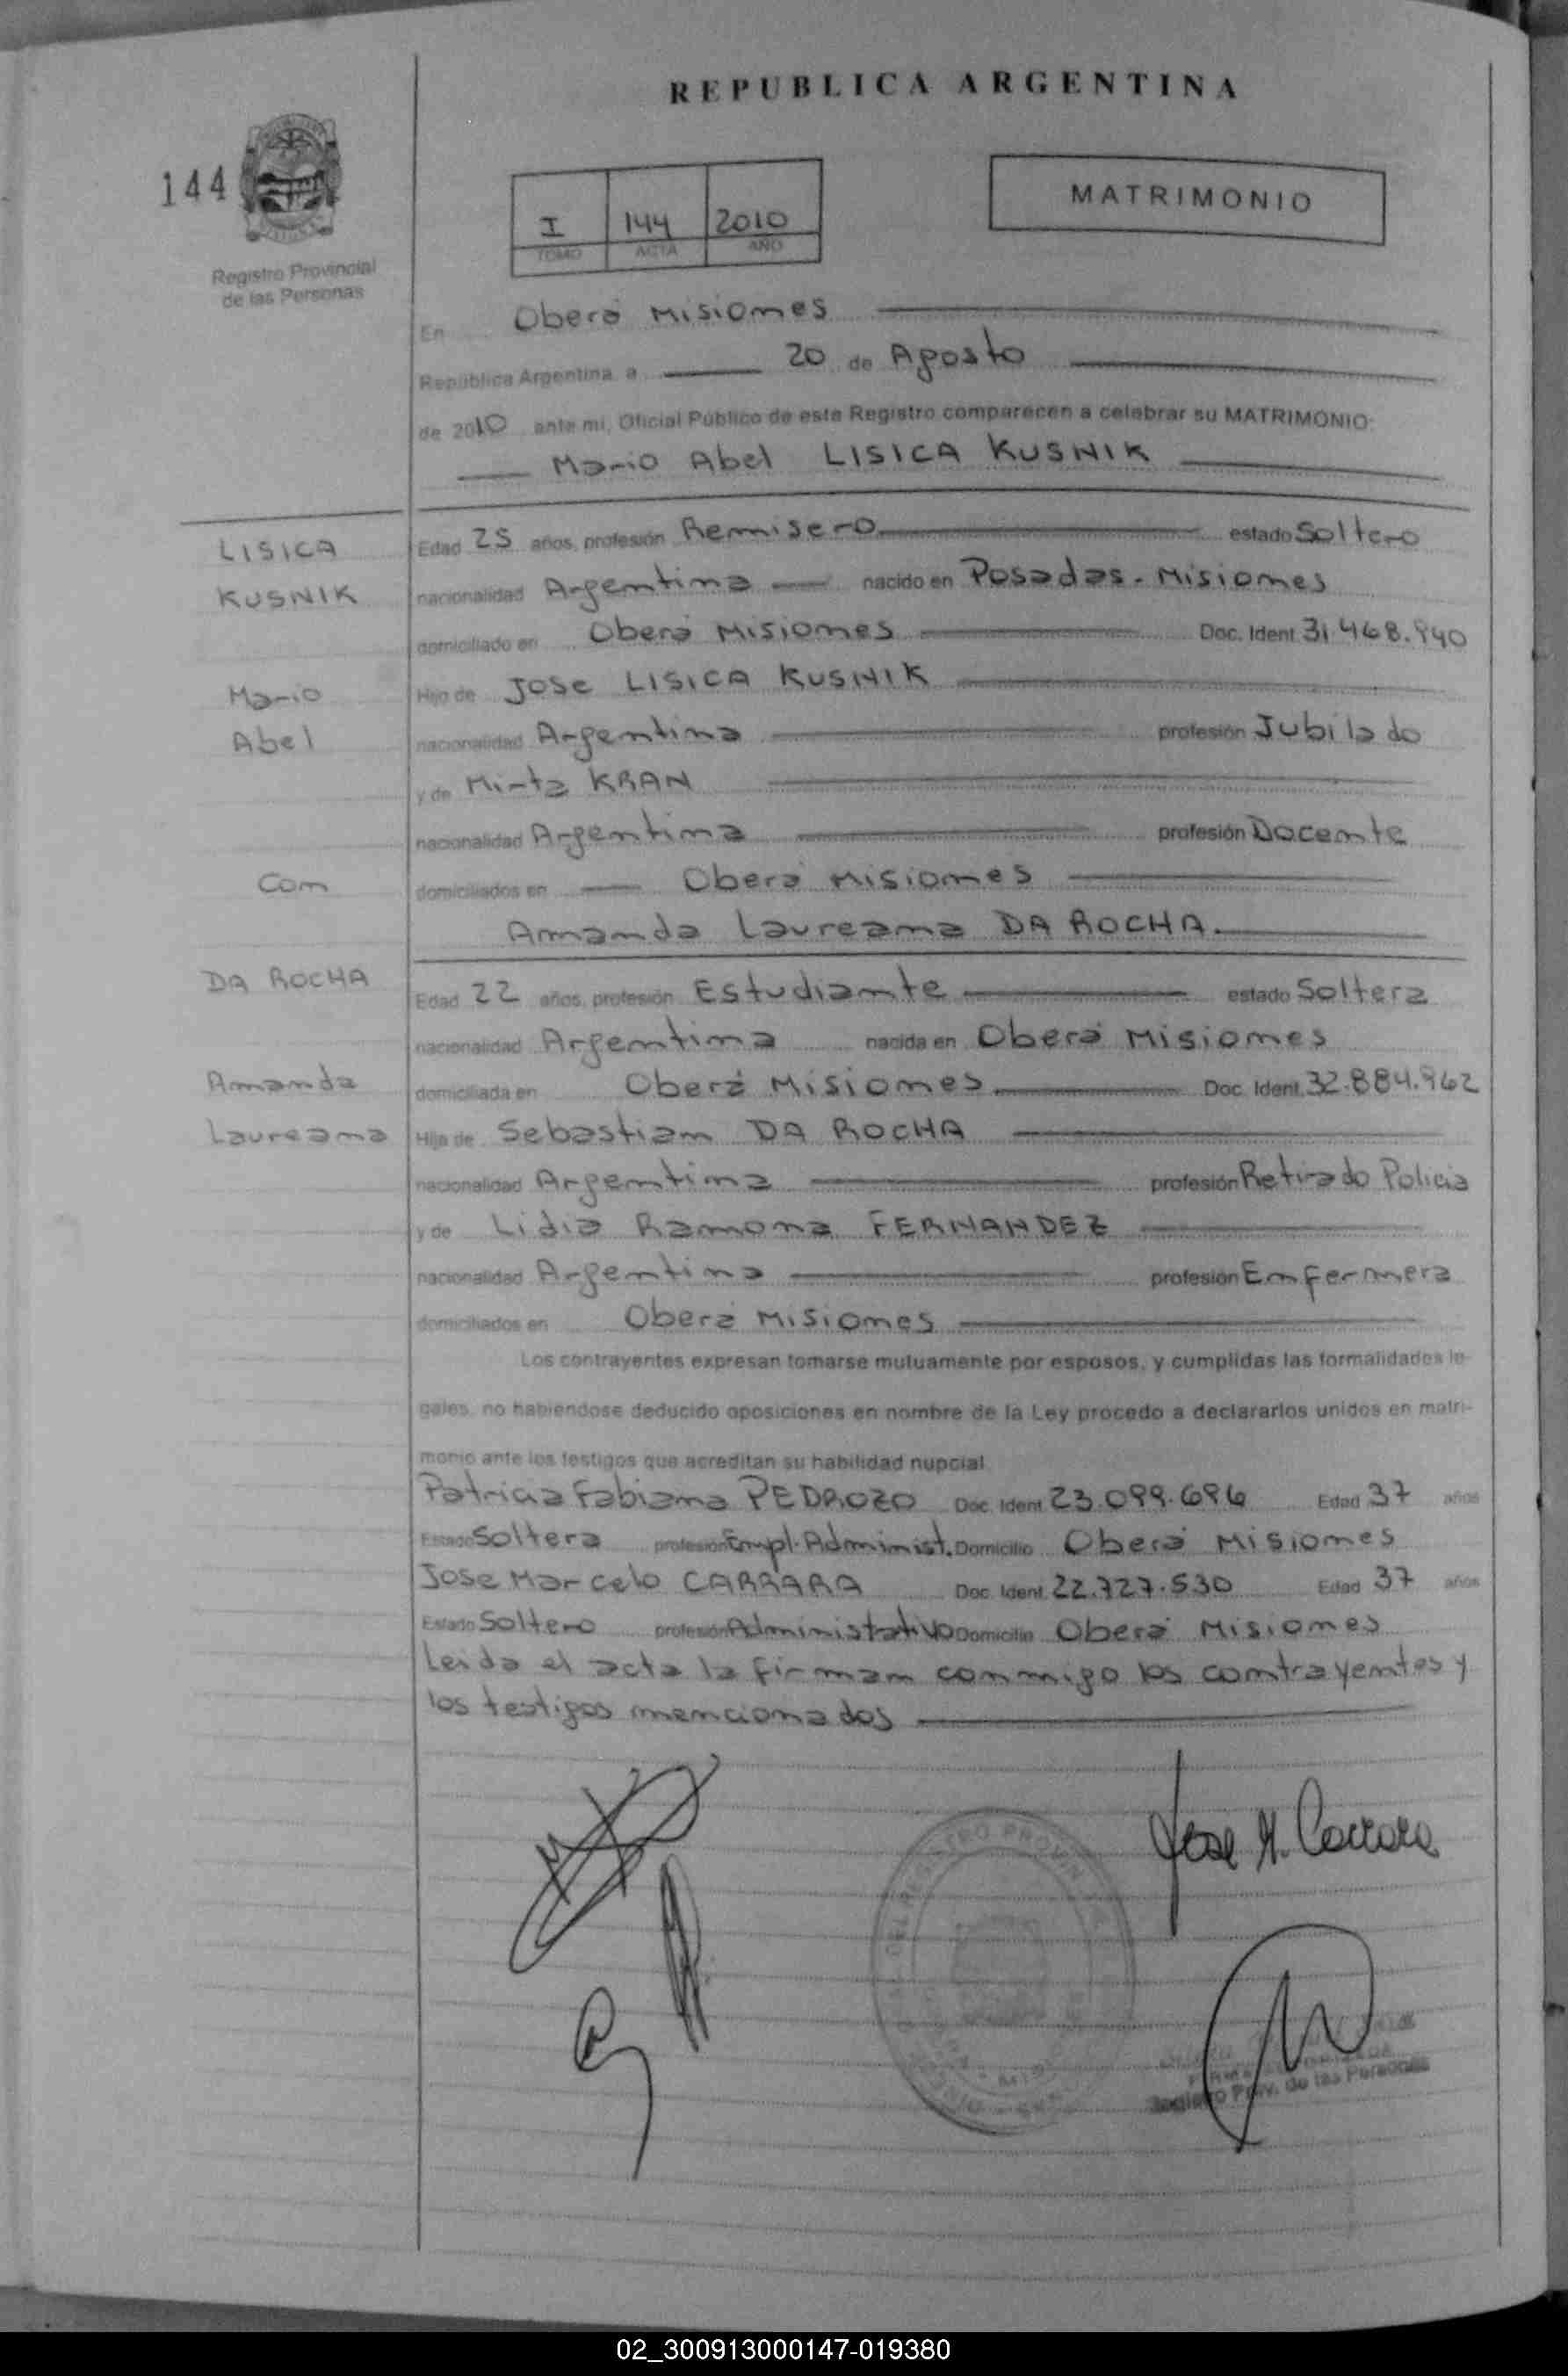 REPUBLICA ARGENTINA
144
I 144 2010
TOMO ACTA AÑO
MATRIMONIO
Registro Provincial
de las Personas
En Oberá Misiones
República Argentina, a 20 de Agosto
de 2010 ante mi, Oficial Público de este Registro comparecen a celebrar su MATRIMONIO:
Mario Abel LISICA KUSNIK
LISICA
KUSNIK
Mario
Abel
Con
DA ROCHA
Amanda
Laureana
Edad 25 años, profesión Remisero estado Soltero
nacionalidad Argentina nacido en Posadas - Misiones
domiciliado en Oberá Misiones Doc. Ident. 31.468.940
Hijo de Jose LISICA KUSNIK
nacionalidad Argentina profesión Jubilado
y de Mirta KRAN
nacionalidad Argentina profesión Docente
domiciliados en Oberá Misiones
Amanda Laureana DA ROCHA.
Edad 22 años, profesión Estudiante estado Soltera
nacionalidad Argentina nacida en Oberá Misiones
domiciliada en Oberá Misiones Doc. Ident. 32.884.962
Hija de Sebastian DA ROCHA
nacionalidad Argentina profesión Retirado Policia
y de Lidia Ramona FERNANDEZ
nacionalidad Argentina profesión Enfermera
domiciliados en Oberá Misiones
Los contrayentes expresan tomarse mutuamente por esposos, y cumplidas las formalidades le-
gales, no habiendose deducido oposiciones en nombre de la Ley procedo a declararlos unidos en matri-
monio ante los testigos que acreditan su habilidad nupcial
Patricia Fabiana PEDROZO Doc. Ident. 23.099.696 Edad 37 años
Estado Soltera profesión Empl. Administ. Domicilio Oberá Misiones
Jose Marcelo CARRARA Doc. Ident. 22.727.530 Edad 37 años
Estado Soltero profesión Administrativo Domicilio Oberá Misiones
Leida el acta la firman conmigo los contrayentes y
los testigos mencionados
Jose M. Carrara
DEL REGISTRO PROVINCIAL
Registro Prov. de las Personas
02_300913000147-019380